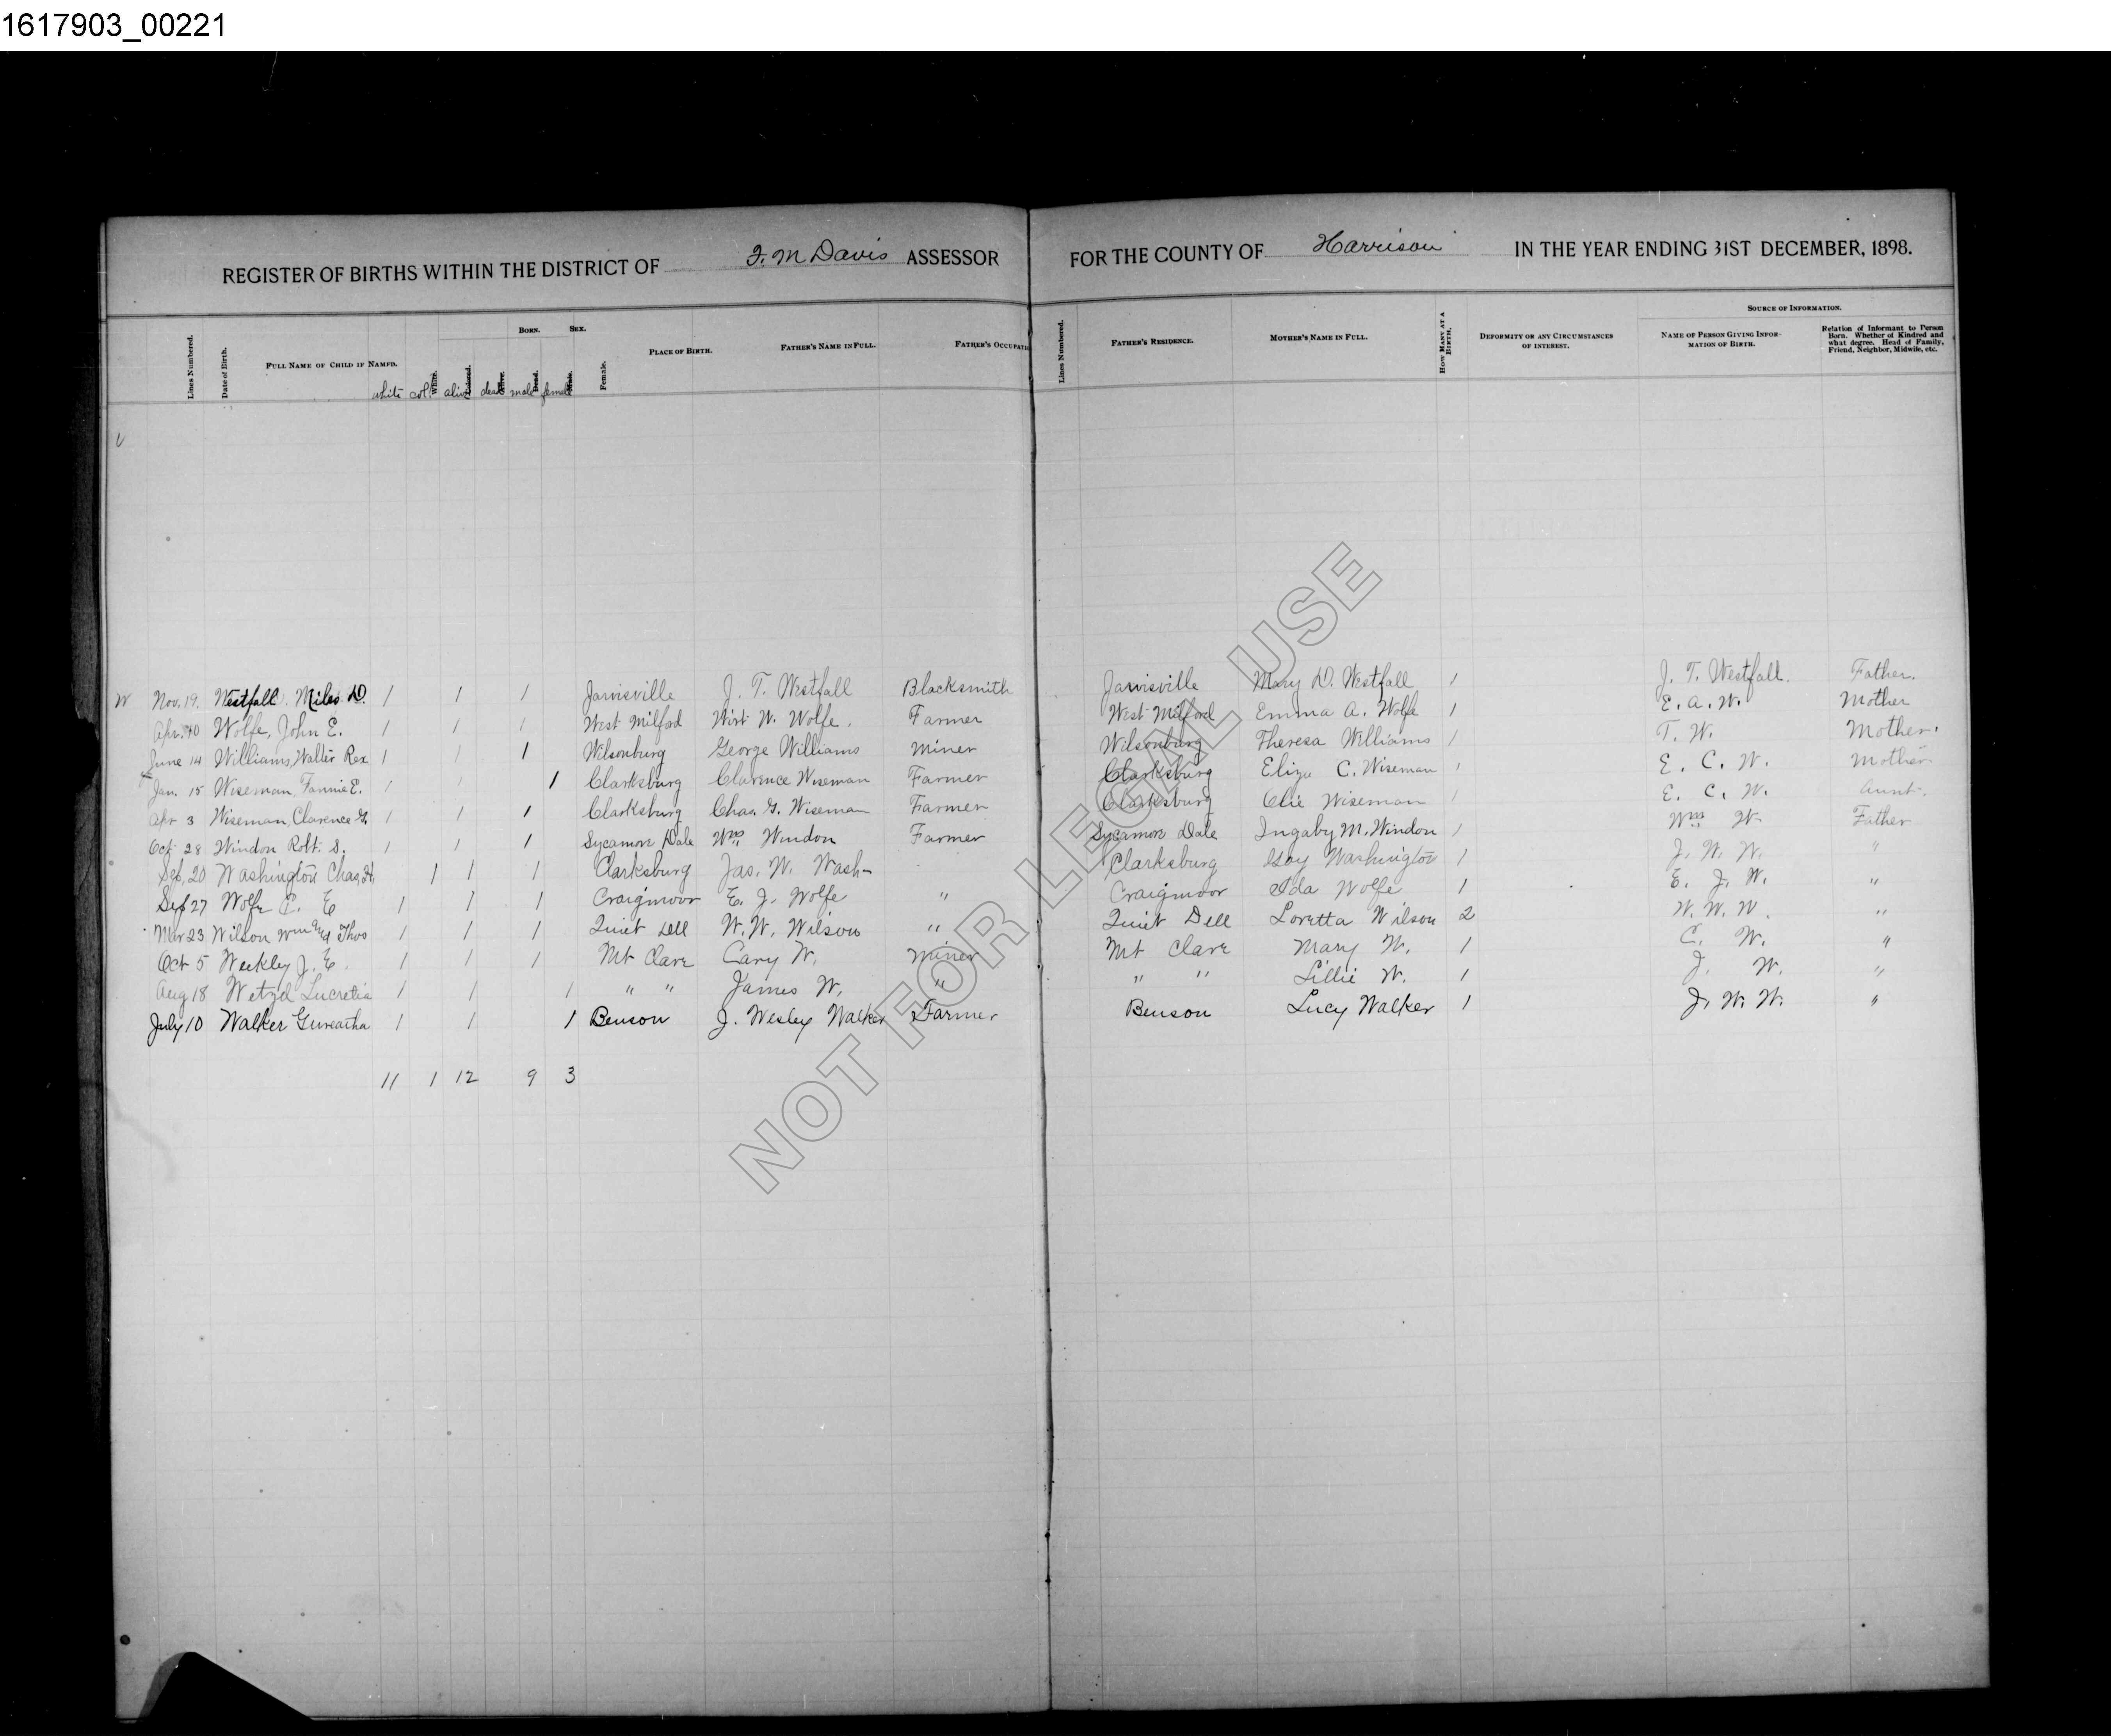 1617903_00221
REGISTER OF BIRTHS WITHIN THE DISTRICT OF F. M Davis ASSESSOR FOR THE COUNTY OF Harrison IN THE YEAR ENDING 31ST DECEMBER, 1898.
Lines Numbered. Date of Birth. FULL NAME OF CHILD IF NAMED. White. Colored. Alive. Dead. Male. Female. BORN. SEX. PLACE OF BIRTH. FATHER'S NAME IN FULL. FATHER'S OCCUPATI Lines Numbered. FATHER'S RESIDENCE. MOTHER'S NAME IN FULL. HOW MANY AT A BIRTH. DEFORMITY OR ANY CIRCUMSTANCES OF INTEREST. SOURCE OF INFORMATION. NAME OF PERSON GIVING INFORMATION OF BIRTH. Relation of Informant to Person Born. Whether of Kindred and what degree. Head of Family, Friend, Neighbor, Midwife, etc.
white col alive dead male female
V
W Nov. 19. Westfall. Miles D. 1 1 1 Jarvisville J. T. Westfall Blacksmith Jarvisville Mary D. Westfall 1 J. T. Westfall. Father.
Apr. Wolfe, John E. 1 1 1 West Milford Wirt W. Wolfe. Farmer West Milford Emma A. Wolfe 1 E. A. W. Mother
June 14 Williams, Walter Rex 1 1 1 Wilsonburg George Williams Miner Wilsonburg Theresa Williams 1 T. W. Mother.
Jan. 15 Wiseman, Fannie E. 1 1 1 Clarksburg Clarence Wiseman Farmer Clarksburg Eliza C. Wiseman 1 E. C. W. Mother
Apr 3 Wiseman, Clarence G. 1 1 1 Clarksburg Chas. G. Wiseman Farmer Clarksburg Olie Wiseman 1 E. C. W. Aunt.
Oct 28 Windon Robt. S. 1 1 1 Sycamore Dale Wm Windon Farmer Sycamore Dale Ingaby M. Windon 1 Wm W. Father
Sep. 20 Washington Chas. H. 1 1 1 Clarksburg Jas. W. Wash- Clarksburg Washington 1 J. W. W. "
Sep 27 Wolfe E 1 1 1 Craigmoor E. J. Wolfe " Craigmoor Ida Wolfe 1 E. J. W. "
Mar 23 Wilson Wm and Thos 1 1 1 Quiet Dell W. W. Wilson " Quiet Dell Loretta Wilson 2 W. W. W. "
Oct 5 Weekley J. E. 1 1 1 Mt Clare Cary W. Miner Mt Clare Mary W. 1 C. W. "
Aug 18 Wetzel Lucretia 1 1 1 " " James W. " " " Lillie W. 1 J. W. "
July 10 Walker 1 1 1 Benson J. Wesley Walker Farmer Benson Lucy Walker 1 J. W. W. "
11 1 12 9 3
NOT FOR LEGAL USE